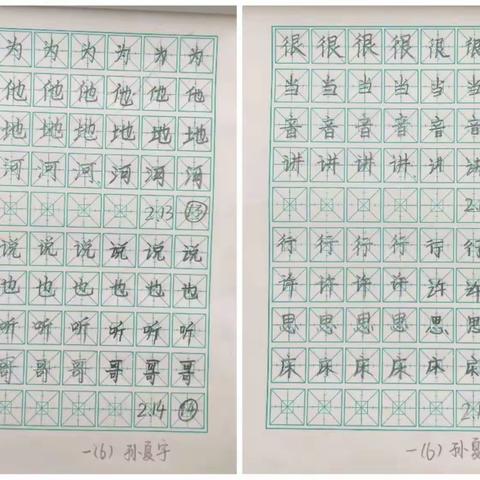 为 为 为 为 为 为
他 他 他 他 他 他
地 地 地 地 地 地
河 河 河 河 河 河
2.13 ⑬
说 说 说 说 说 说
也 也 也 也 也 也
听 听 听 听 听 听
哥 哥 哥 哥 哥 哥
2.14 ⑭
一(6) 孙夏宇
很 很 很 很 很 很
当 当 当 当 当 当
音 音 音 音 音 音
讲 讲 讲 讲 讲 讲
行 行 行 行 行 行
许 许 许 许 许 许
思 思 思 思 思 思
床 床 床 床 床 床
一(6) 孙夏